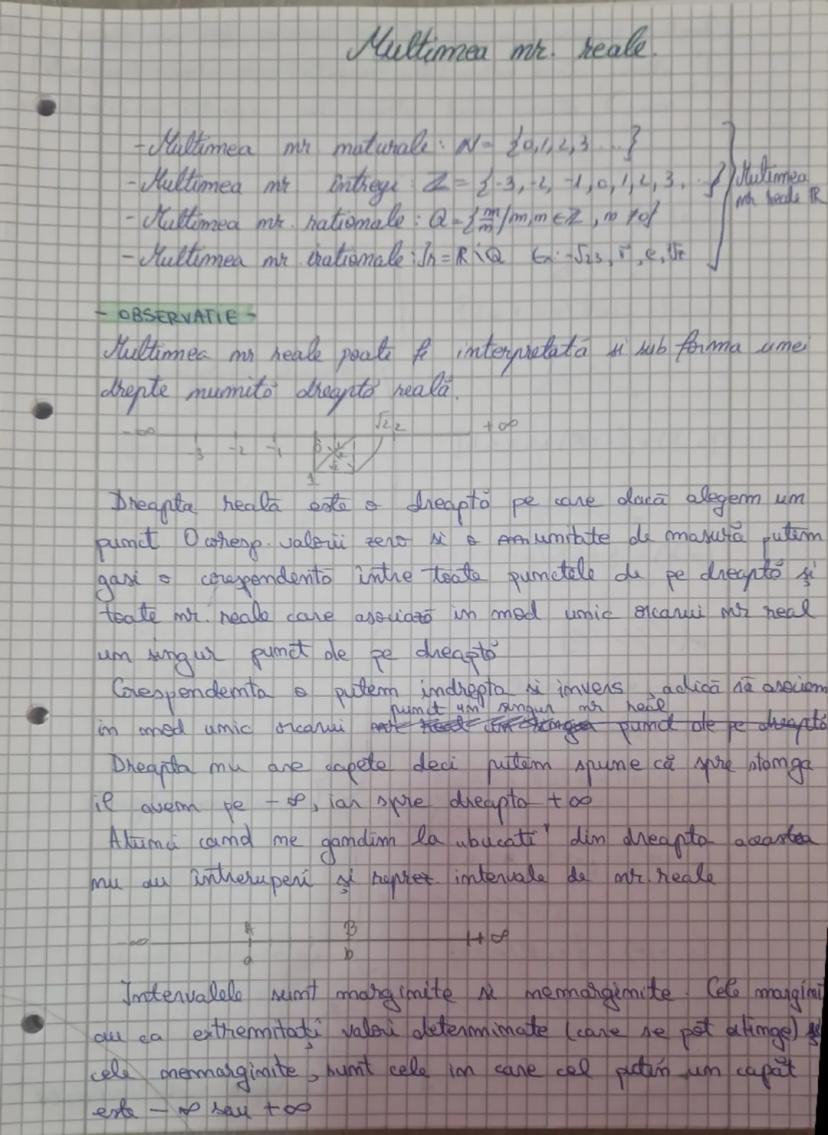 Multimea nr. reale.
- Multimea nr naturale: N = {0,1,2,3 ...}
- Multimea nr intregi Z = {-3, -2, -1, 0, 1, 2, 3, ..}
- Multimea nr. rationale: Q = {m/n / m,n ∈ Z, n ≠ 0}
- Multimea nr irationale: = R \ Q Ex: -√23, π, e,
Multimea nr reale R
- OBSERVATIE -
Multimea nr reale poate fi interpretată si sub forma unei
drepte numită dreaptă reală.
-∞ -3 -2 -1 0 1 √2 2 +∞
1
Dreapta reală este o dreaptă pe care dacă alegem un
punct O coresp. valorii zero si o unitate de masură putem
gasi o corespondentă între toate punctele de pe dreaptă și
toate nr. reale care asociază in mod unic oricarui nr real
un singur punct de pe dreaptă
Corespondenta o putem indrepta si invers, adică să asociem
punct un singur nr real
in mod unic oricarui punct de pe dreaptă
Dreapta nu are capete deci putem spune că spre stanga
il avem pe -∞, iar spre dreapta +∞
Atunci cand ne gandim la „bucati" din dreapta aceastea
nu au întreruperi și reprez. intervale de nr. reale
-∞ A B +∞
a b
Intervalele sunt marginite si nemarginite. Cele margini
au ca extremitați valori determinate (care se pot atinge) și
cele nemarginite, sunt cele in care cel putin un capăt
este -∞ sau +∞